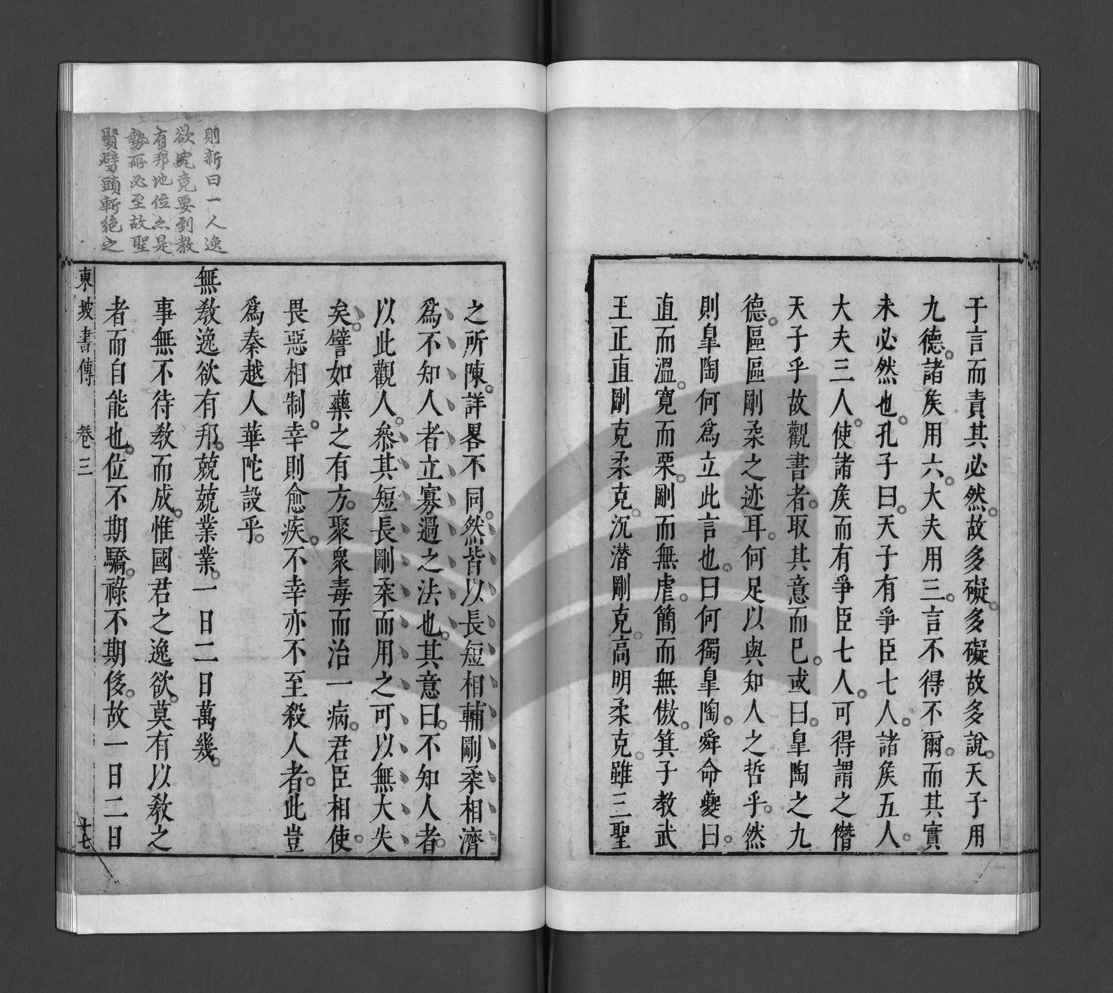 于言而責其必然。故多礙。多礙故多說。天子用
九德。諸矦用六。大夫用三。言不得不爾。而其實
未必然也。孔子曰。天子有爭臣七人。諸矦五人。
大夫三人。使諸矦而有爭臣七人。可得謂之僭
天子乎。故觀書者。取其意而已。或曰。皐陶之九
德。區區剛柔之迹耳。何足以與知人之哲乎。然
則皐陶何爲立此言也。曰。何獨皐陶。舜命夔曰。
直而溫。寬而栗。剛而無虐。簡而無傲。箕子教武
王正直剛克柔克。沉潜剛克。高明柔克。雖三聖
之所陳。詳畧不同。然皆以長短相輔剛柔相濟
爲不知人者立寡過之法也。其意曰。不知人者。
以此觀人。叅其短長剛柔而用之可以無大失
矣。譬如藥之有方。聚衆毒而治一病。君臣相使。
畏惡相制。幸則愈疾。不幸亦不至殺人者。此豈
爲秦越人華陀設乎。
無敎逸欲有邦。兢兢業業。一日二日萬幾。
事無不待敎而成。惟國君之逸欲。莫有以敎之
者而自能也。位不期驕。祿不期侈。故一日二日
東坡書傳 卷三 十七
則新曰一人逸
欲究竟要到教
有邦地位亦是
勢所必至故聖
賢劈頭斬絕之